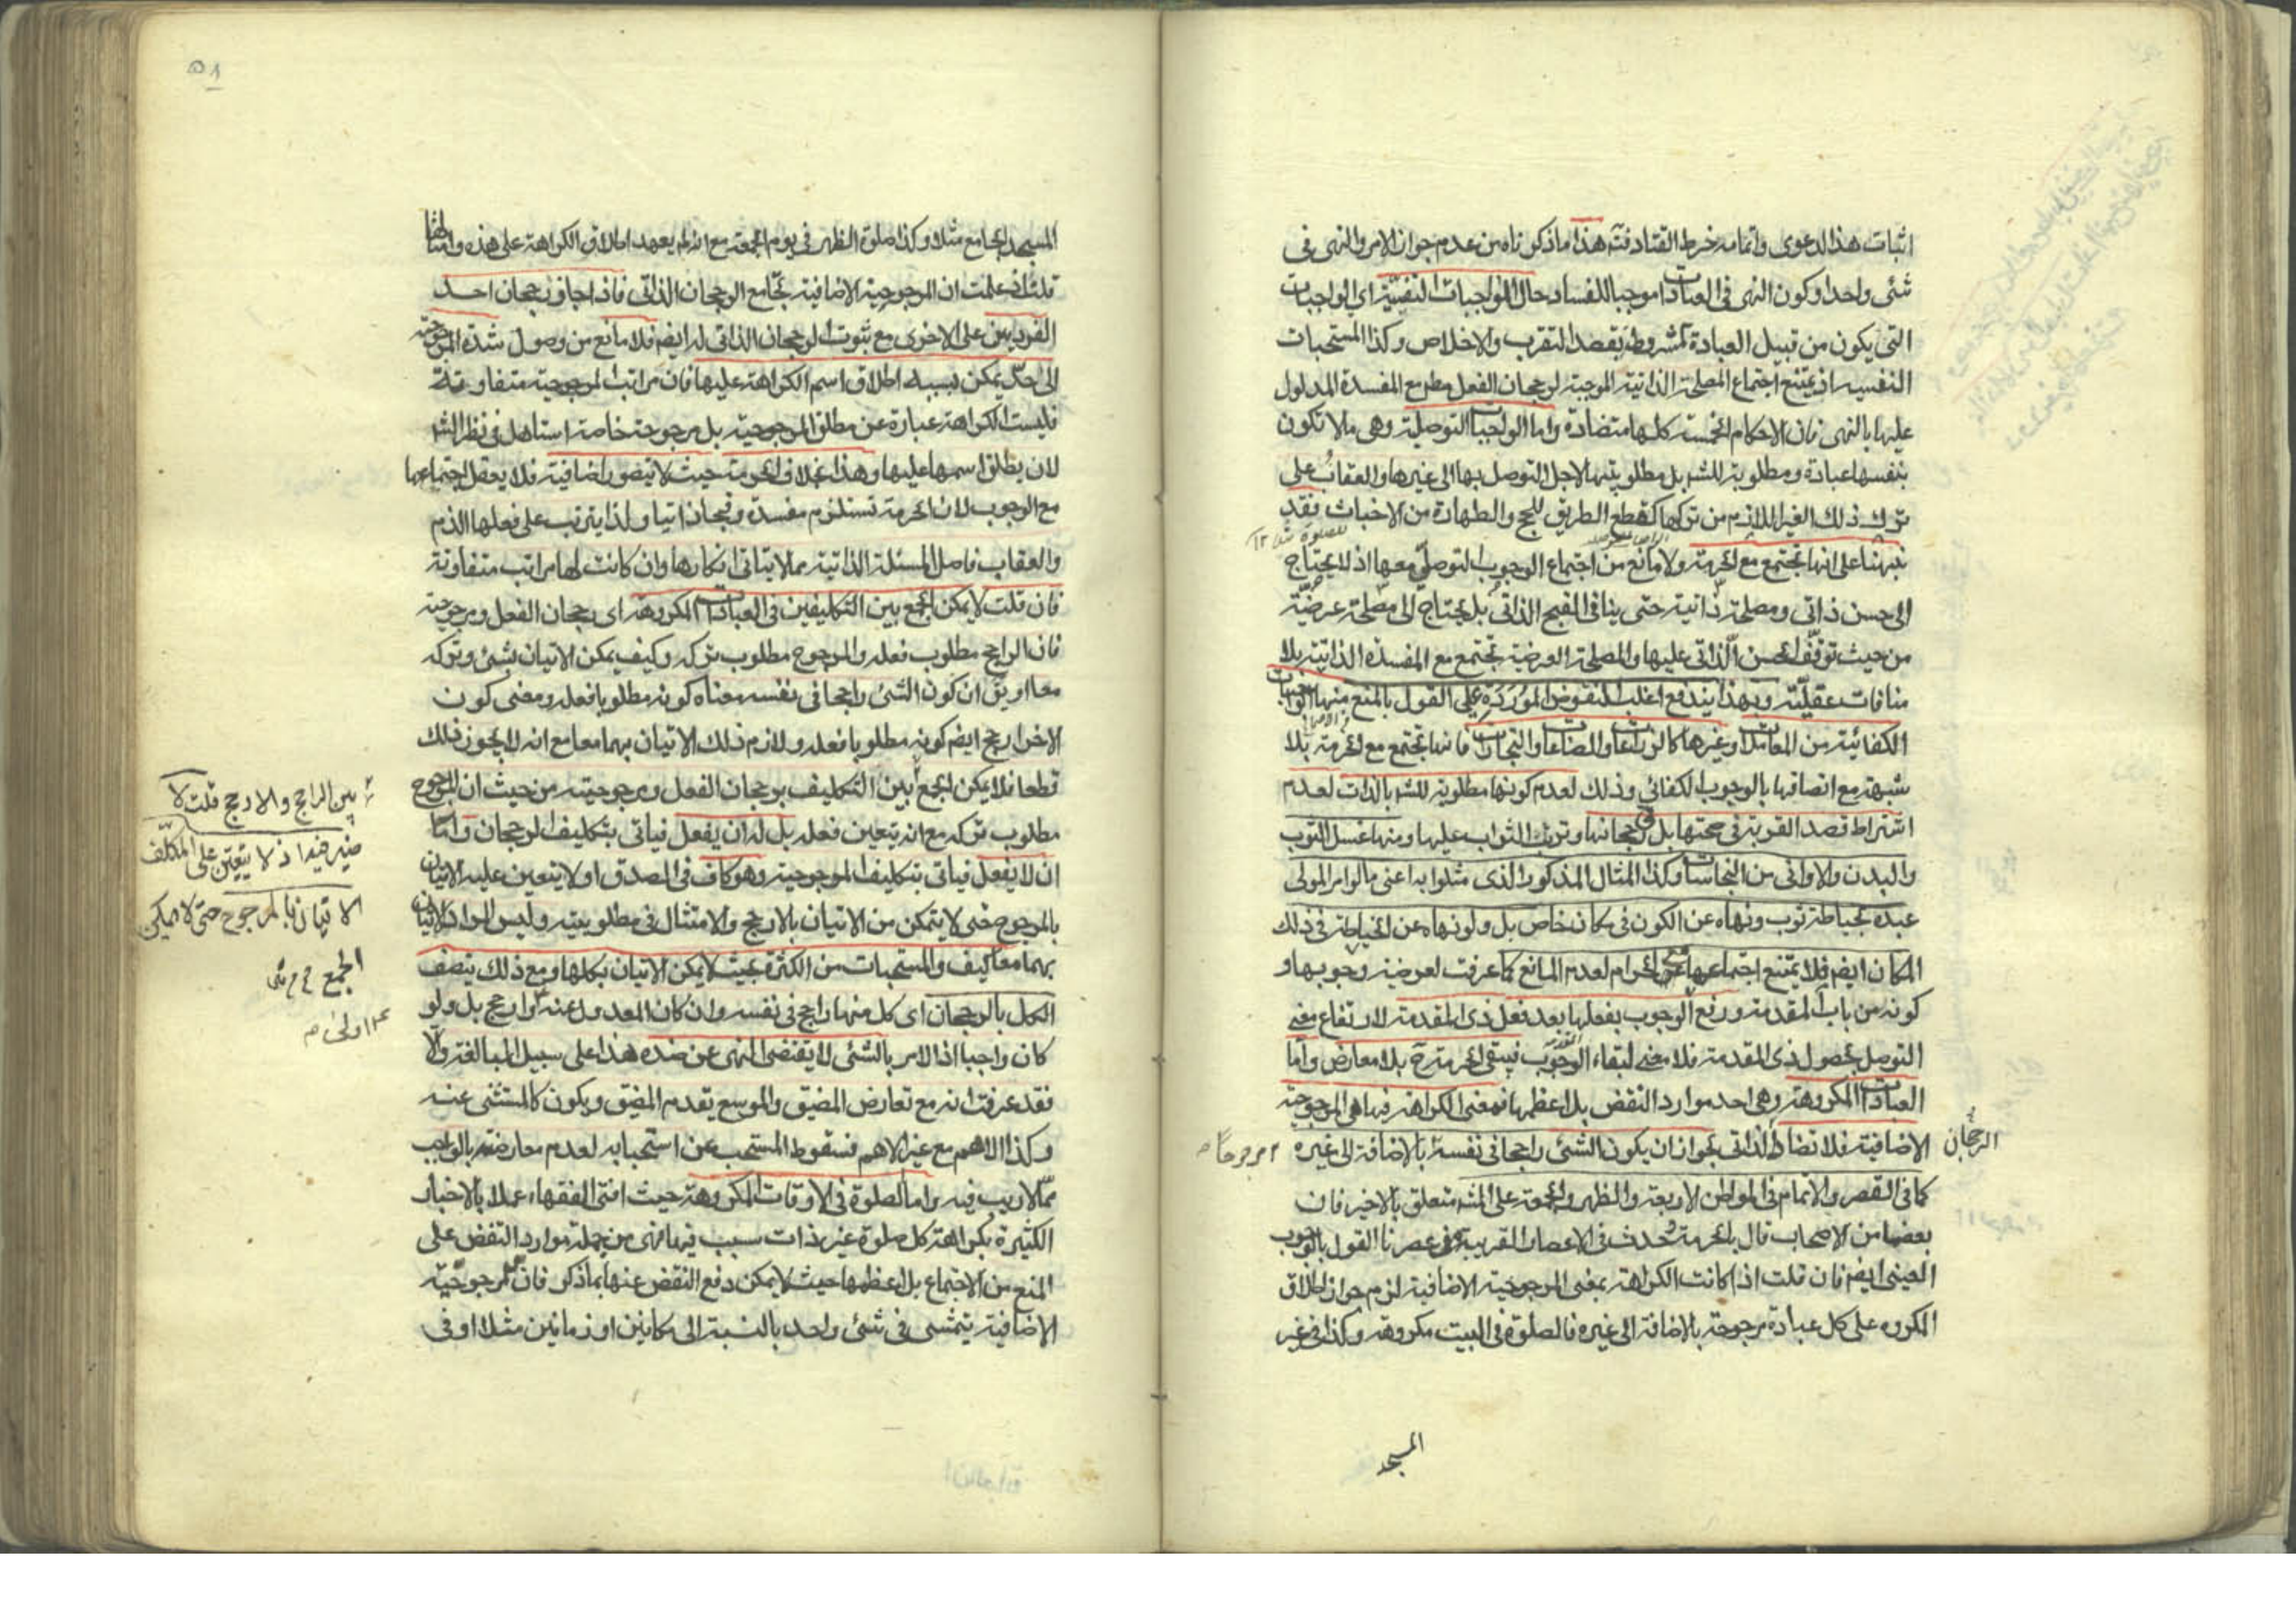 اثبات هذا الدعوى واتمامه خرط القتاد فته هذا ما ذكرناه من عدم جواز الامر والنهى فى
شئى واحد او كون النهى فى العبادات موجبا للفساد حال الواجبات النفسية اى الواجبات
التى يكون من قبيل العبادة كمشروط بقصد التقرب والاخلاص وكذا المستحبات
النفسيه اذ يمتنع اجتماع المصلحة الذاتية الموجبة لرجحان الفعل مطم مع المفسدة المدلول
عليها بالنهى فان الاحكام الخمسة كلها متضادة واما الواجبات التوصلية وهى ما لا تكون
بنفسها عبادة ومطلوبة للشه بل مطلوبيتها لاجل التوصل بها الى غيرها والعقاب على
ترك ذلك الغير اللازم من تركها كقطع الطريق للحج والطهارة من الاخباث فقد
للصلوة مثلا ١٢
نبهنا على انها تجتمع مع الحرمة ولا مانع من اجتماع الوجوب التوصلى معها اذ لا يحتاج
الى حسن ذاتى ومصلحة ذاتية حتى ينافى القبح الذاتى بل يحتاج الى مصلحة عرضية
من حيث توقف الحسن الذاتى عليها والمصلحة العرضية تجتمع مع المفسدة الذاتية بلا
منافات عقلية وبهذا يندفع اغلب النقوض الموردة على القول بالمنع منها الواجبات
الكفائية من المعاملات وغيرها كالزراعات والصناعات والتجارات فانها تجتمع مع الحرمة بلا
شبهة مع اتصافها بالوجوب الكفائى وذلك لعدم كونها مطلوبة للشه بالذات لعدم
اشتراط قصد القربة فى صحتها بل فى رجحانها وترتب الثواب عليها ومنها غسل الثوب
والبدن والاوانى من النجاسات وكذا المثال المذكور الذى مثلوا به اعنى ما لو امر المولى
عبده بخياطة ثوب ونهاه عن الكون فى مكان خاص بل ولو نهاه عن الخياطة فى ذلك
المكان ايضم فلا يمتنع اجتماعها مع الحرام لعدم المانع كما عرفت لعرضية وجوبها و
كونه من باب المقدمة ورفع الوجوب بفعلها بعد فعل ذى المقدمة لارتفاع معنى
التوصل بحصول ذى المقدمة فلا معنى لبقاء الوجوب فيبقى الحرمة ح بلا معارض واما
العبادات المكروهة وهى احد موارد النقض بل اعظمها فمعنى الكراهة فيها هى المرجوحية
الاضافية فلا تضاد الرجحان الذاتى لجواز ان يكون الشئى راجحا فى نفسه بالاضافة الى غيره مرجوحا م
كما فى القصر والاتمام فى المواطن الاربعة والظهر والجمعة على المشه متعلق بالاخير فان
بعضا من الاصحاب قال بالحرمة وحدث فى الاعصار القريبة من عصرنا القول بالوجوب
العينى ايضم فان قلت اذا كانت الكراهة بمعنى المرجوحية الاضافية لزم جواز اطلاق
المكروه على كل عبادة مرجوحة بالاضافة الى غيره فالصلوة فى البيت مكروهة وكذا فى غير
المسجد
٥١
المسجد الجامع مثلا وكذا صلوة الظهر فى يوم الجمعة مع انه لم يعهد اطلاق الكراهة على هذه وامثالها
قلت اذ علمت ان المرجوحية الاضافية تجامع الرجحان الذاتى فاذا جاز رجحان احد
الفردين على الاخرى مع ثبوت الرجحان الذاتى له ايضم فلا مانع من وصول شدة المرجوحية
الى حد يمكن بسببه اطلاق اسم الكراهة عليها فان مراتب المرجوحية متفاوتة
فليست الكراهة عبارة عن مطلق المرجوحية بل مرجوحة خاصة استاهل فى نظر الشه
لان يطلق اسمها عليها وهذا بخلاف الحرمة حيث لا يتصور اضافية فلا يعقل اجتماعها
مع الوجوب لان الحرمة تستلزم مفسدة وقبحا ذاتيا ولذا يترتب على فعلها الذم
والعقاب فاصل المسئلة الذاتية مما لا يتاتى انكارها وان كانت لها مراتب متفاوتة
فان قلت لا يمكن الجمع بين التكليفين فى العبادات المكروهة اى رجحان الفعل ومرجوحية
فان الراجح مطلوب فعله والمرجوح مطلوب تركه وكيف يمكن الاتيان بشئى وتركه
معا او يق ان كون الشئى راجحا فى نفسه معناه كونه مطلوبا فعله ومعنى كون
الاخر ارجح ايضم كونه مطلوبا فعله ولازم ذلك الاتيان بهما معا مع انه لا يجوز ذلك
قطعا فلا يمكن الجمع بين التكليف برجحان الفعل ومرجوحيته من حيث ان المرجوح
بين الراجح والارجح قلت لا
مطلوب تركه مع انه يتعين فعله بل له ان يفعل فياتى بتكليف الرجحان واما
ضير فيه اذ لا يتعين على المكلف
ان لا يفعل فياتى بتكليف المرجوحية وهو كاف فى الصدق او لا يتعين عليه الاتيان
بالمرجوح حتى لا يتمكن من الاتيان بالارجح والامتثال فى مطلوبيته وليس المراد الاتيان
الاتيان بالمرجوح حتى لا يمكن
بهما معا كيف والمستحبات من الكثرة بحيث لا يمكن الاتيان بكلها ومع ذلك يتصف
الجمع
الكل بالرجحان اى كل منها راجح فى نفسه وان كان المعدول عنه وارجح بل ولو
اولى م
كان واجبا اذ الامر بالشئى لا يقتضى النهى عن ضده هذا على سبيل المبالغة والا
فقد عرفت انه مع تعارض المضيق والموسع يقدم المضيق ويكون كالمستثنى عنه
وكذا الاهم مع غير الاهم فسقوط المستحب عن استحبابه لعدم معارضته بالواجب
مما لا ريب فيه واما الصلوة فى الاوقات المكروهة حيث افتى الفقهاء عملا بالاخبار
الكثيرة بكراهة كل صلوة غير ذات سبب فيها فهى من جملة موارد النقض على
المنع من الاجتماع بل اعظمها حيث لا يمكن دفع النقض عنها بما ذكر فان المرجوحية
الاضافية يتمشى فى شئى واحد بالنسبة الى مكانين او زمانين مثلا او فى